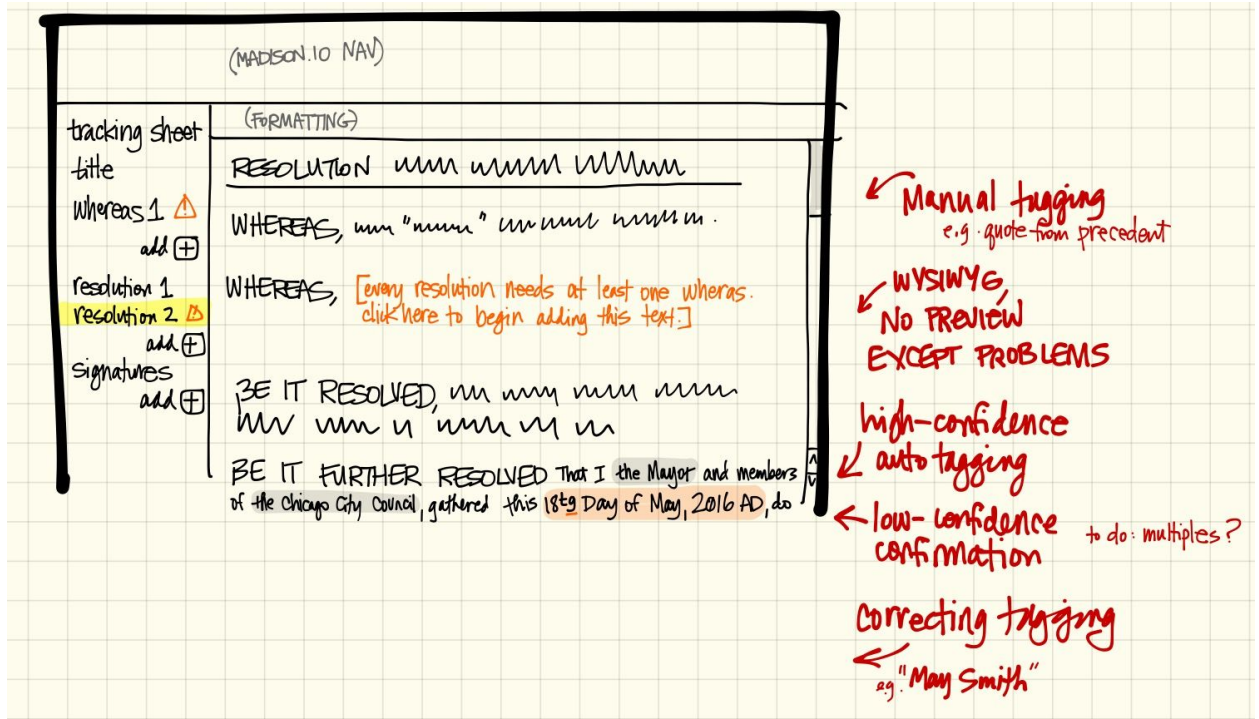 (MADISON.IO NAV)
(FORMATTING)
tracking sheet
title
whereas 1 ⚠
add +
resolution 1
resolution 2 ⚠
add +
signatures
add +
RESOLUTION
WHEREAS, " "
WHEREAS, [every resolution needs at least one wheras.
click here to begin adding this text.]
BE IT RESOLVED,
BE IT FURTHER RESOLVED That I the Mayor and members
of the Chicago City Council, gathered this 18tg Day of May, 2016 AD, do
Manual tagging
e.g. quote from precedent
WYSIWYG,
NO PREVIEW
EXCEPT PROBLEMS
high-confidence
auto tagging
low-confidence
confirmation
to do: multiples?
correcting tagging
e.g. "May Smith"